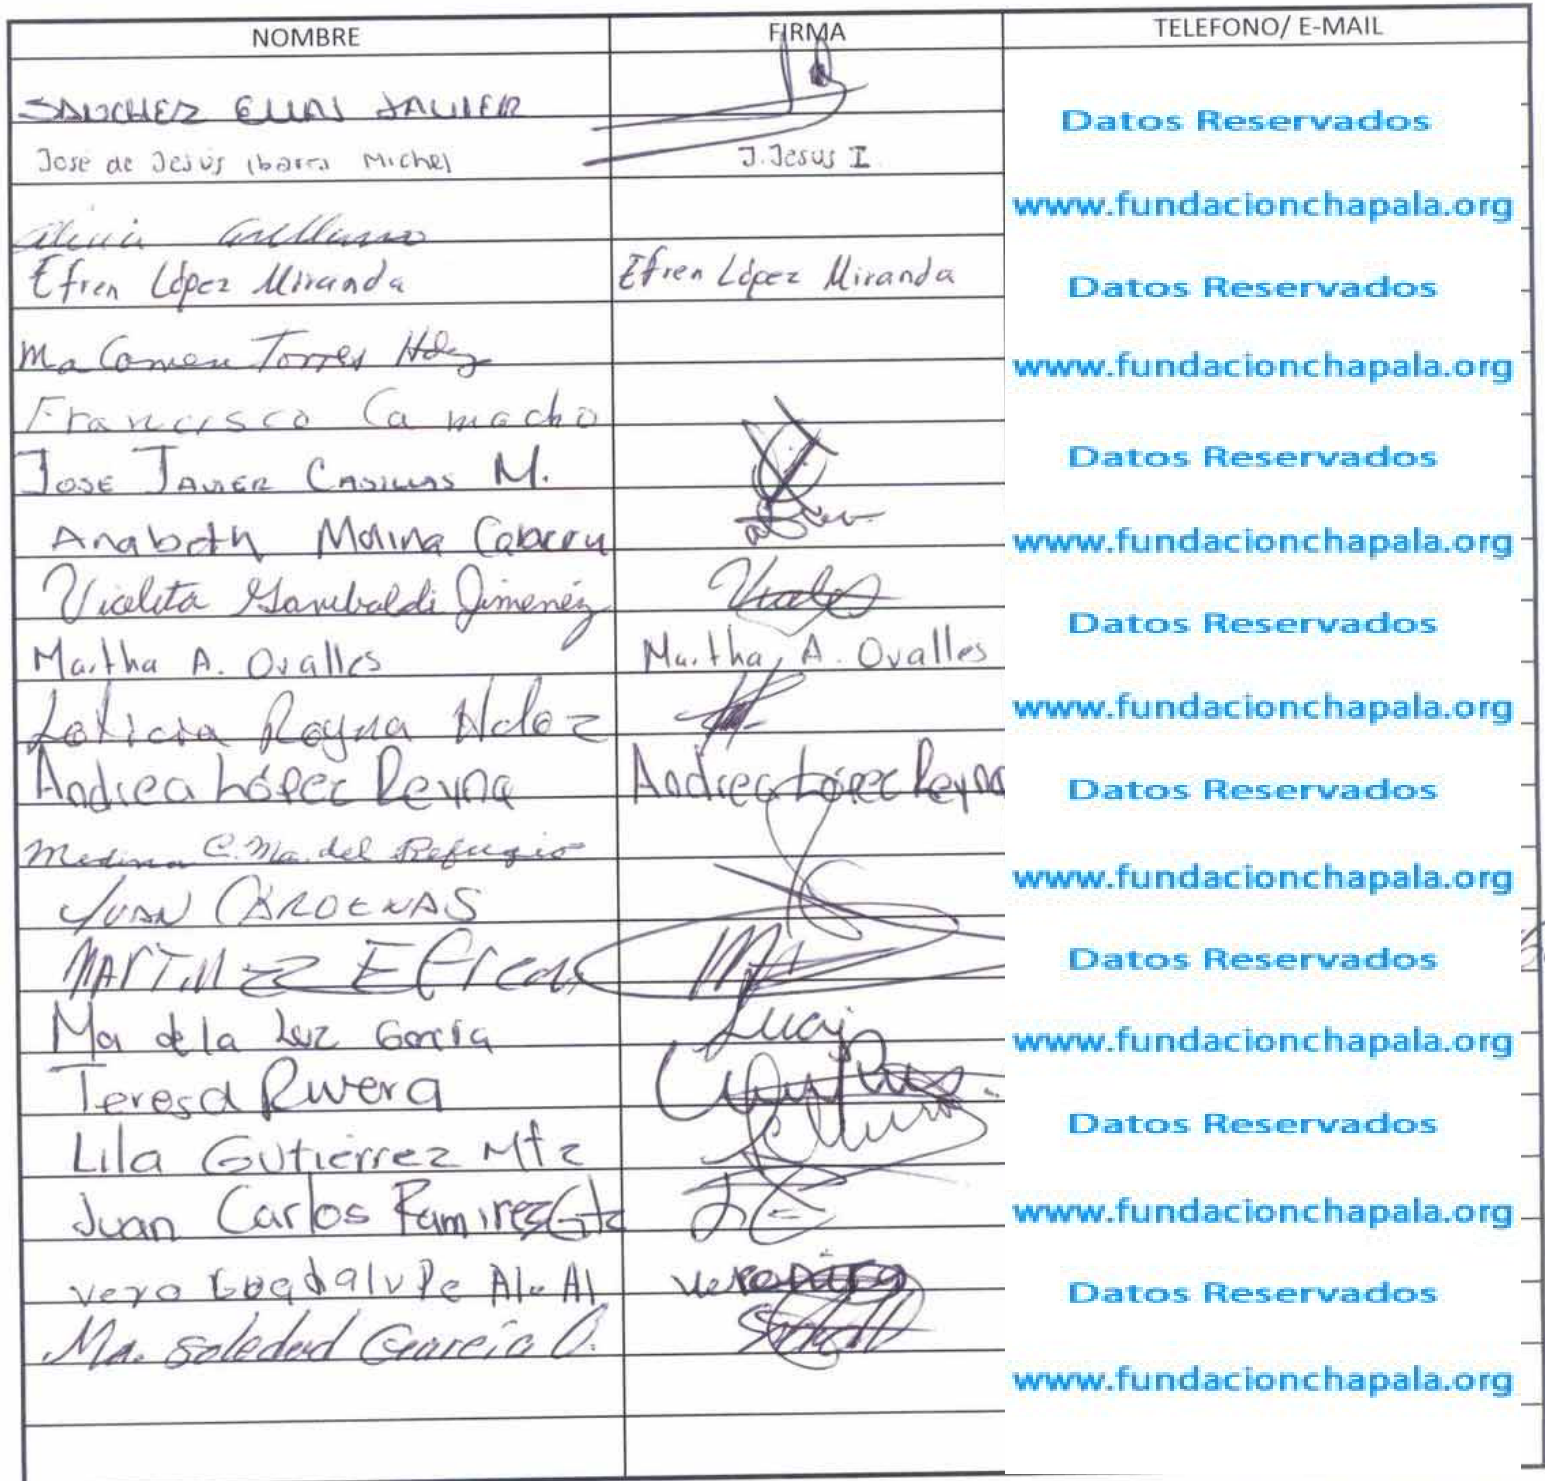 NOMBRE FIRMA TELEFONO/ E-MAIL
SANCHEZ ELIAS JAVIER
Datos Reservados
José de Jesús Ibarra Michel J. Jesus I.
www.fundacionchapala.org
Alicia Arellano
Efren López Miranda Efren López Miranda Datos Reservados
Ma Carmen Torres Hdz
www.fundacionchapala.org
Francisco Camacho
JOSE JAVIER CASILLAS M. Datos Reservados
Anabeth Molina Cabrera www.fundacionchapala.org
Violeta Garibaldi Jimenéz Violeta
Datos Reservados
Martha A. Ovalles Martha A. Ovalles
Leticia Reyna www.fundacionchapala.org
Andrea López Reyna Andrea López Reyna Datos Reservados
Medina C. Ma. del Refugio
www.fundacionchapala.org
JUAN CARDENAS
MARTINEZ Efren Datos Reservados
Ma de la Luz García Lucy www.fundacionchapala.org
Teresa Rivera
Datos Reservados
Lila Gutiérrez Mtz
Juan Carlos Ramirez Gtz www.fundacionchapala.org
vera Guadalupe Datos Reservados
Ma. Soledad García O.
www.fundacionchapala.org